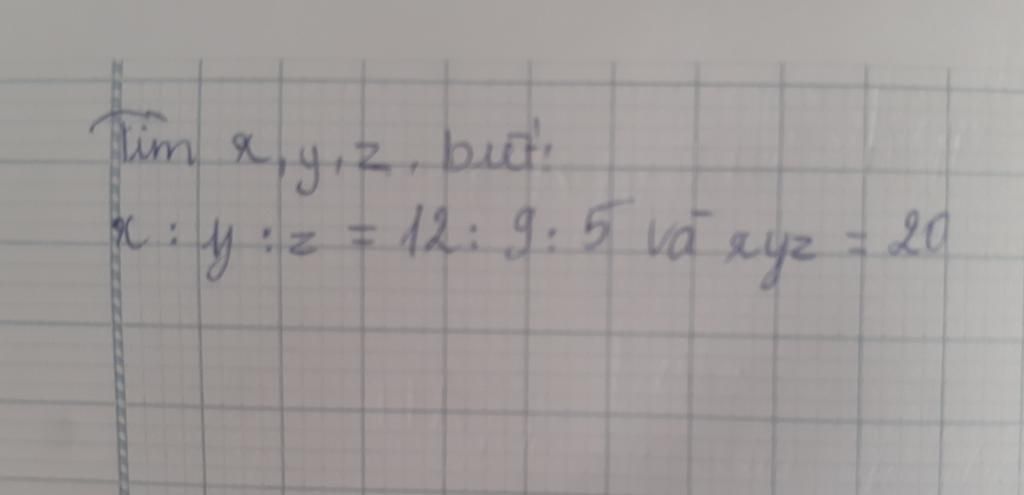 Tìm x, y, z, biết:
x : y : z = 12 : 9 : 5 và xyz = 20